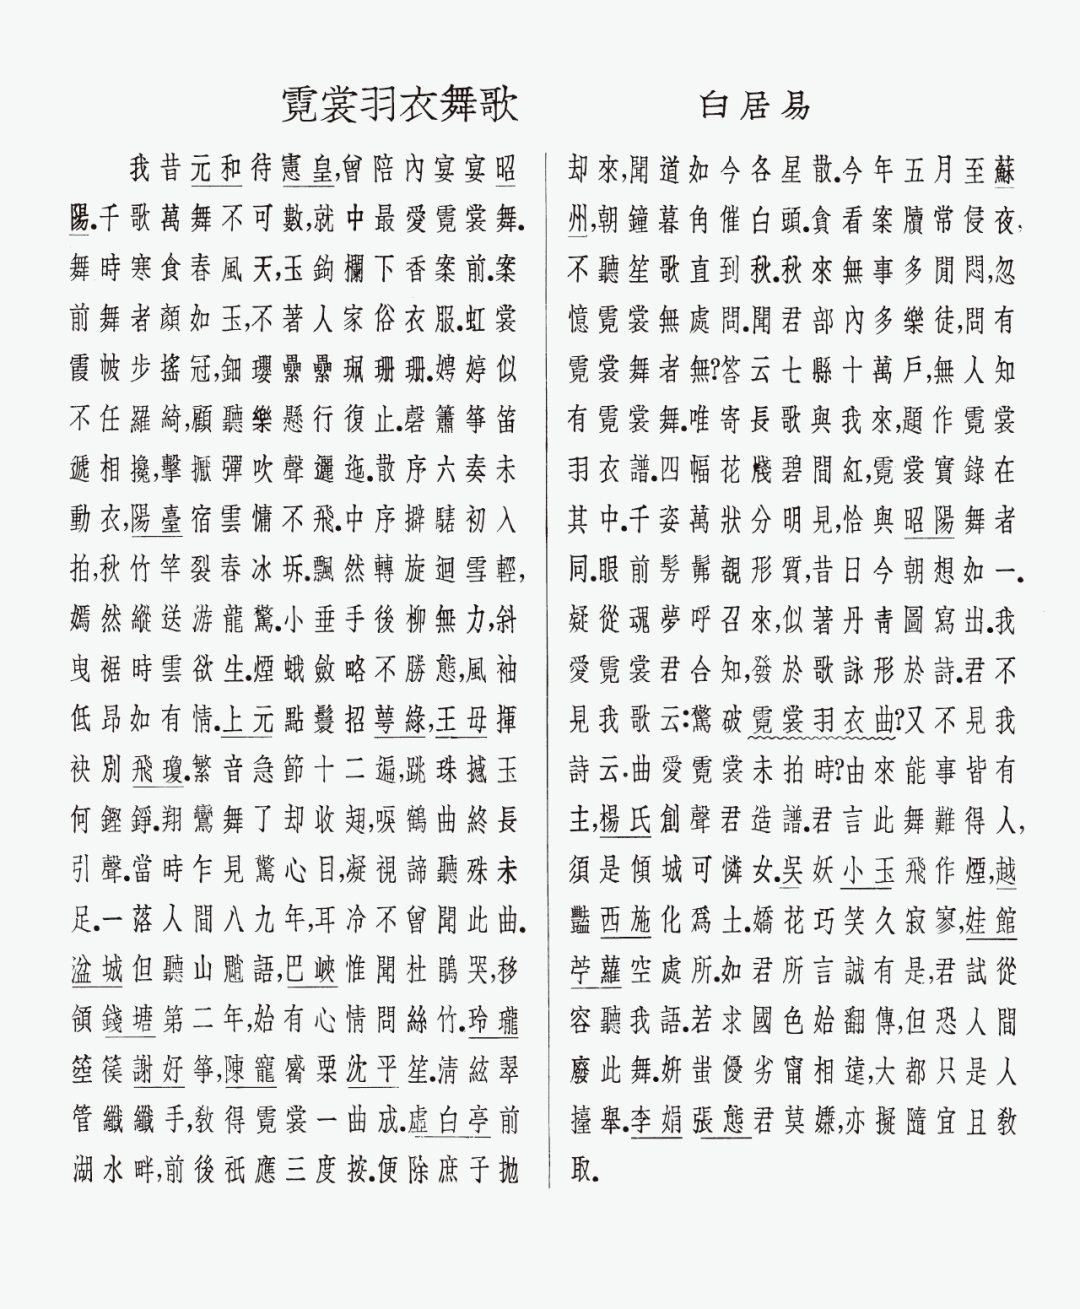 霓裳羽衣舞歌
白居易
我昔元和待憲皇,曾陪內宴宴昭
陽.千歌萬舞不可數,就中最愛霓裳舞.
舞時寒食春風天,玉鉤欄下香案前.案
前舞者顏如玉,不著人家俗衣服.虹裳
霞帔步搖冠,鈿瓔纍纍珮珊珊.娉婷似
不任羅綺,顧聽樂懸行復止.磬簫箏笛
遞相攙,擊擫彈吹聲邐迤.散序六奏未
動衣,陽臺宿雲慵不飛.中序擗騞初入
拍,秋竹竿裂春冰坼.飄然轉旋迴雪輕,
嫣然縱送游龍驚.小垂手後柳無力,斜
曳裾時雲欲生.煙蛾斂略不勝態,風袖
低昂如有情.上元點鬟招萼綠,王母揮
袂別飛瓊.繁音急節十二遍,跳珠撼玉
何鏗錚.翔鸞舞了却收翅,唳鶴曲終長
引聲.當時乍見驚心目,凝視諦聽殊未
足.一落人間八九年,耳冷不曾聞此曲.
湓城但聽山魈語,巴峽惟聞杜鵑哭,移
領錢塘第二年,始有心情問絲竹.玲瓏
箜篌謝好箏,陳寵觱栗沈平笙.清絃翠
管纖纖手,教得霓裳一曲成.虛白亭前
湖水畔,前後祇應三度按.便除庶子拋
却來,聞道如今各星散.今年五月至蘇
州,朝鐘暮角催白頭.貪看案牘常侵夜,
不聽笙歌直到秋.秋來無事多閒悶,忽
憶霓裳無處問.聞君部內多樂徒,問有
霓裳舞者無?答云七縣十萬戶,無人知
有霓裳舞.唯寄長歌與我來,題作霓裳
羽衣譜.四幅花牋碧間紅,霓裳實錄在
其中.千姿萬狀分明見,恰與昭陽舞者
同.眼前髣髴覩形質,昔日今朝想如一.
疑從魂夢呼召來,似著丹青圖寫出.我
愛霓裳君合知,發於歌詠形於詩.君不
見我歌云:驚破霓裳羽衣曲?又不見我
詩云.曲愛霓裳未拍時?由來能事皆有
主,楊氏創聲君造譜.君言此舞難得人,
須是傾城可憐女.吳妖小玉飛作煙,越
豔西施化為土.嬌花巧笑久寂寥,娃館
苧蘿空處所.如君所言誠有是,君試從
容聽我語.若求國色始翻傳,但恐人間
廢此舞.妍蚩優劣甯相遠,大都只是人
擡舉.李娟張態君莫嫌,亦擬隨宜且教
取.